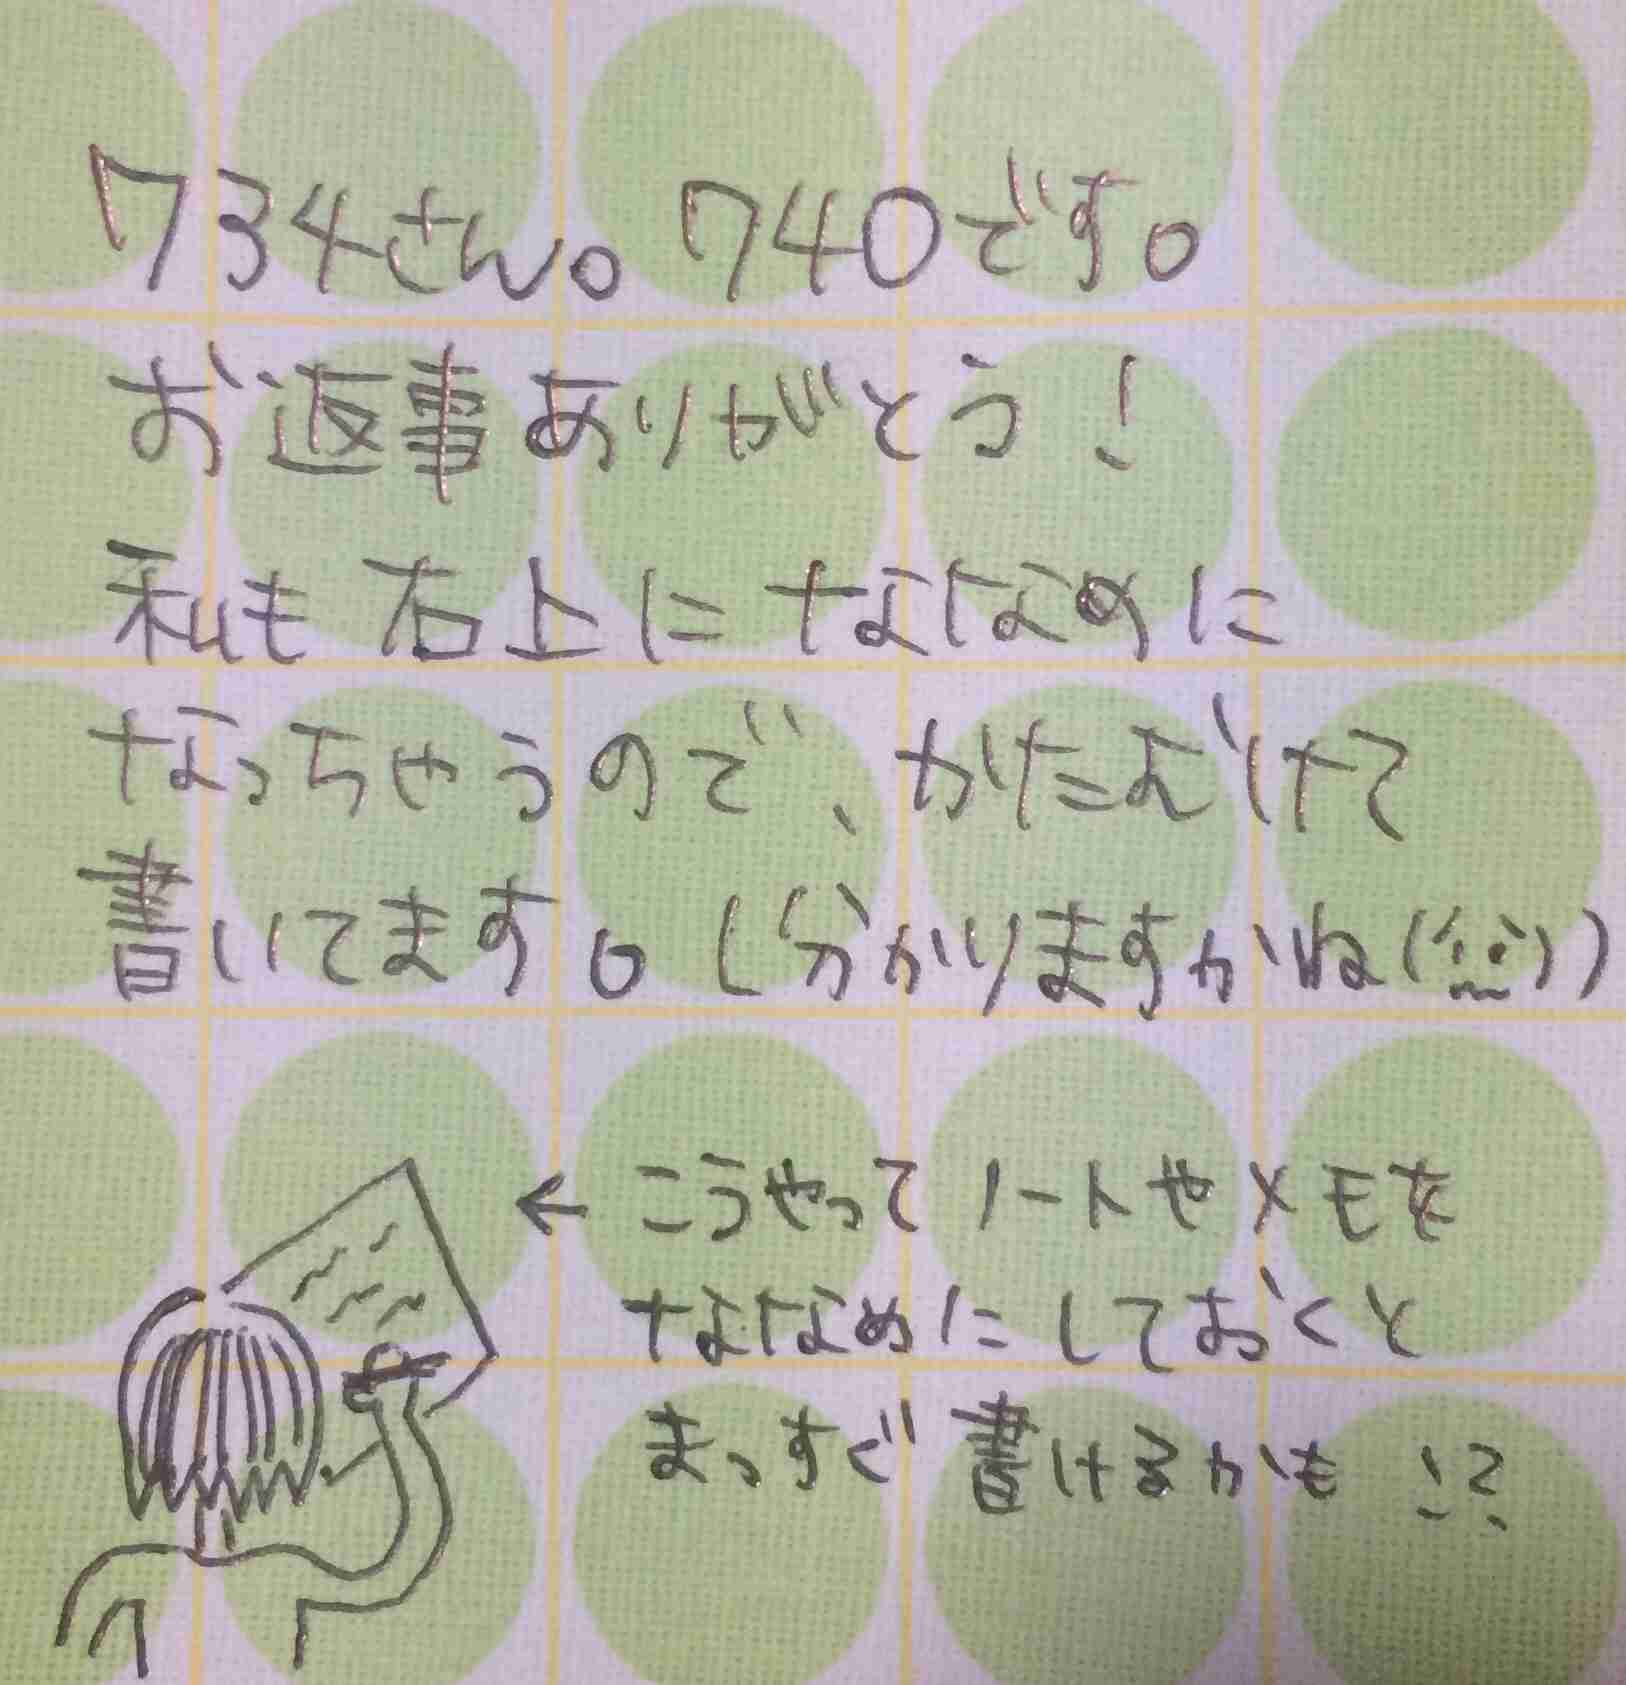 734さん。740です。
お返事ありがとう！
私も右上にななめに
なっちゃうので、かたむけて
書いてます。(分かりますかね(^^;))
← こうやってノートやメモを
ななめにしておくと
まっすぐ書けるかも!?